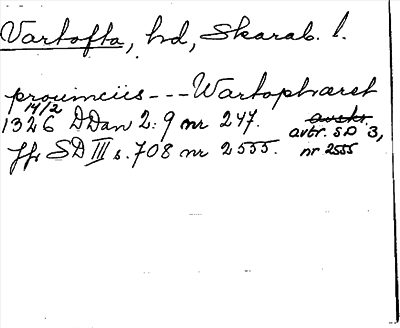 Vartofta, hd, Skarab. l.
provinciis --- Wartophæret
14/2
1326 DDan 2:9 nr 247. avskr.
avtr. SD 3,
jfr SD III s. 708 nr 2555. nr 2555